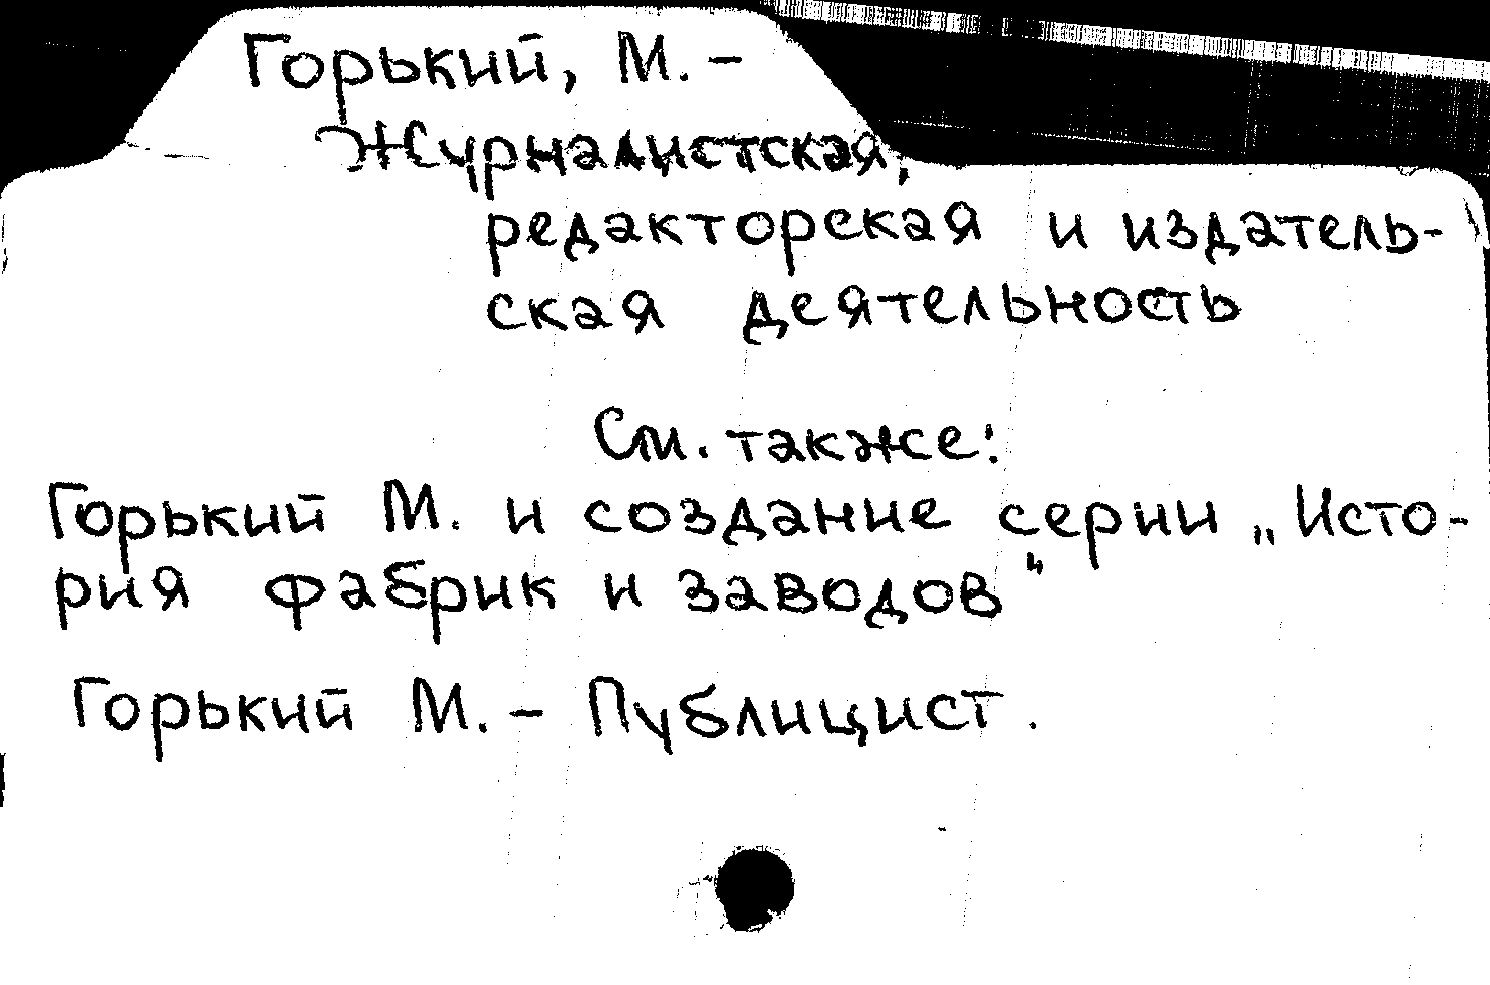 Горький, М. –
Журналистская,
редакторская и издатель-
ская деятельность
См. также:
Горький М. и создание серии „Исто-
рия фабрик и заводов"
Горький М. – Публицист.